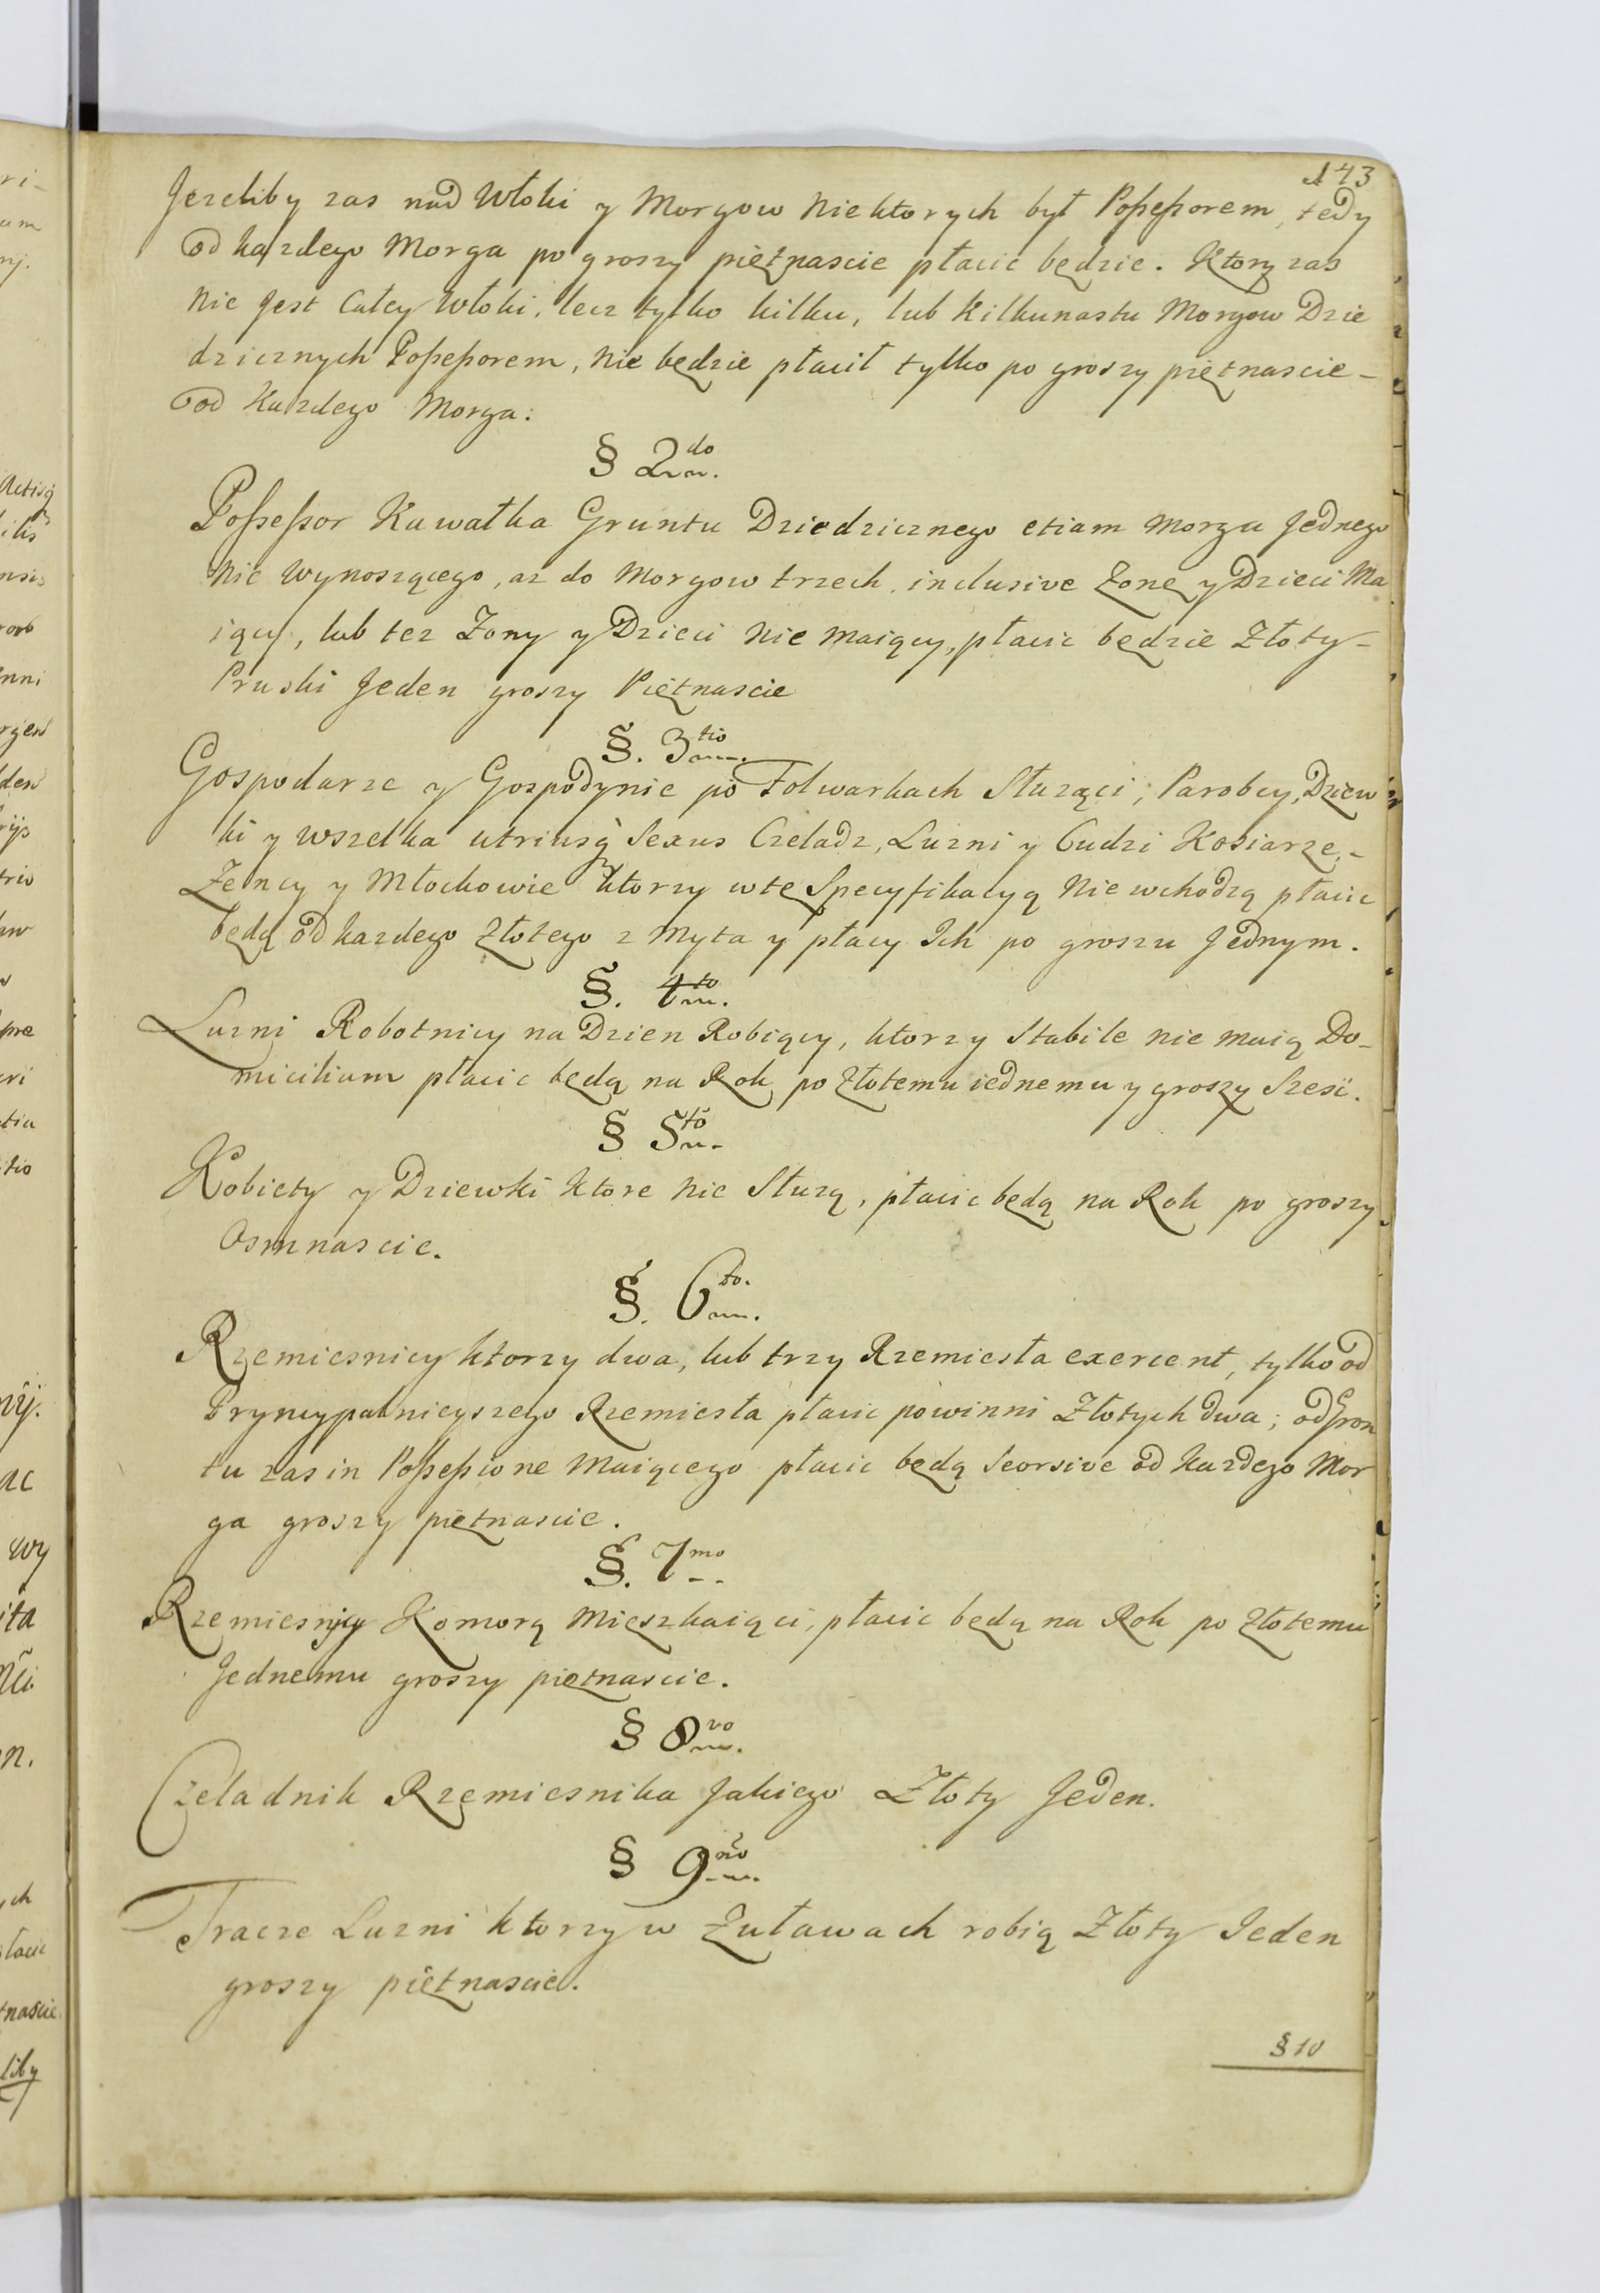 143
Jezeliby zas nad Włoki y Morgow niektorych był Poſseſsorem, tedy
od kazdego Morga po groszy piętnascie płacic będzie. Ktory zas
nie jest całey Włoki, lecz tylko kilku, lub kilkunastu Morgow Dzie
dzicznych Poſseſsorem, nie będzie płacił tylko po groszy piętnascie –
od Kazdego Morga.
§ 2do
Poſseſsor Kawałka Gruntu Dziedzicznego etiam Morga Jednego
nie wynoszącego, az do Morgow trzech inclusive Zonę y Dzieci Ma
iący, lub tez Zony y Dzieci nie maiący, płacic będzie Złoty –
Pruski Jeden groszy Piętnascie
§. 3tio
Gospodarze y Gospodynie po Folwarkach Słuzący; Parobcy, Dziew
ki y wszelka utriusq Sexus Czeladz, Luzni y Cudzi Kosiarze, –
Zency y Młockowie ktorzy w tę Specyfikacyą nie wchodzą płacic
będą od kazdego Złotego z Myta y płacy Ich po groszu Jednym.
§. 4to
Luzni Robotnicy na Dzien Robiący, ktorzy Stabile nie maią Do-
micilium płacic będą na Rok po Złotemu iednemu y groszy Szesc.
§ 5to
Kobiety y Dziewki Ktore nie Słuzą, płacic będą na Rok po groszy
Osmnascie.
§. 6to.
Rzemiesnicy ktorzy dwa, lub trzy Rzemiesła exercent, tylko od
Pryncypalnieyszego Rzemiesła płacic powinni Złotych dwa; od Gron
tu zas in Poſseſsione Maiącego płacic będą Seorsive od Kazdego Mor
ga groszy piętnascie.
§. 7mo
Rzemiesnicy Komorą Mieszkaiąci, płacic będą na Rok po Złotemu
Jednemu groszy piętnascie.
§ 8vo
Czeladnik Rzemiesnika Jakiego Złoty Jeden.
§ 9no
Tracze Luzni ktorzy w Zuławach robią Złoty Jeden
groszy piętnascie.
§ 10